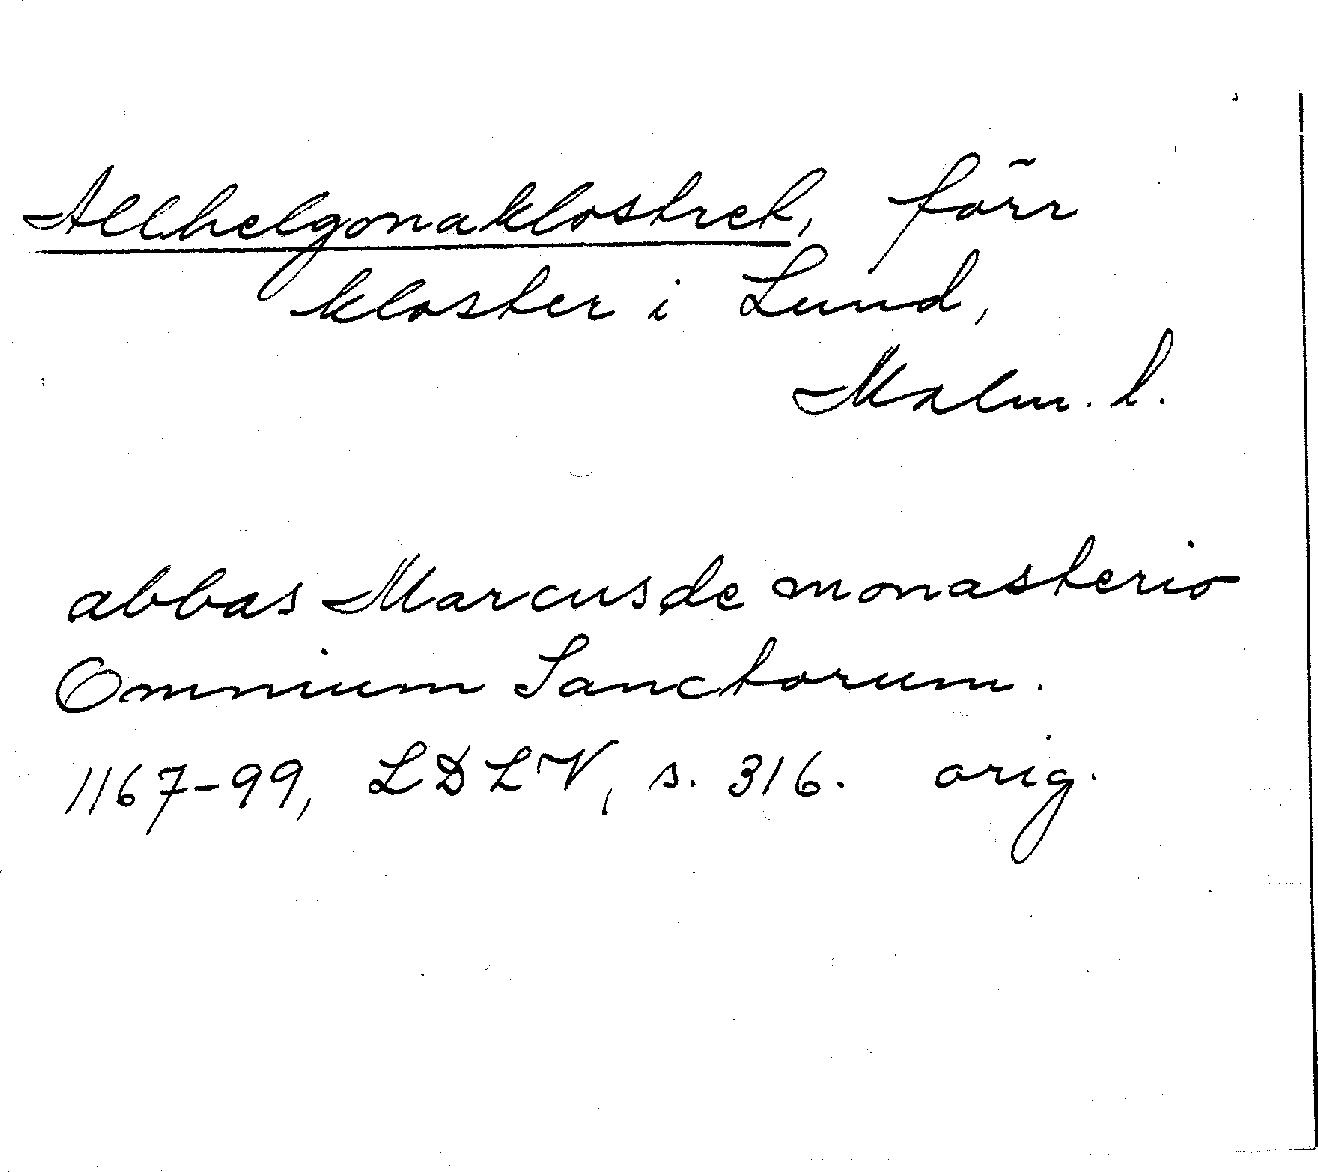 Allhelgonaklostret, förr
kloster i Lund,
Malm. l.
abbas Marcus de monasterio
Omnium Sanctorum.
1167-99, LDLV, s. 316. orig.